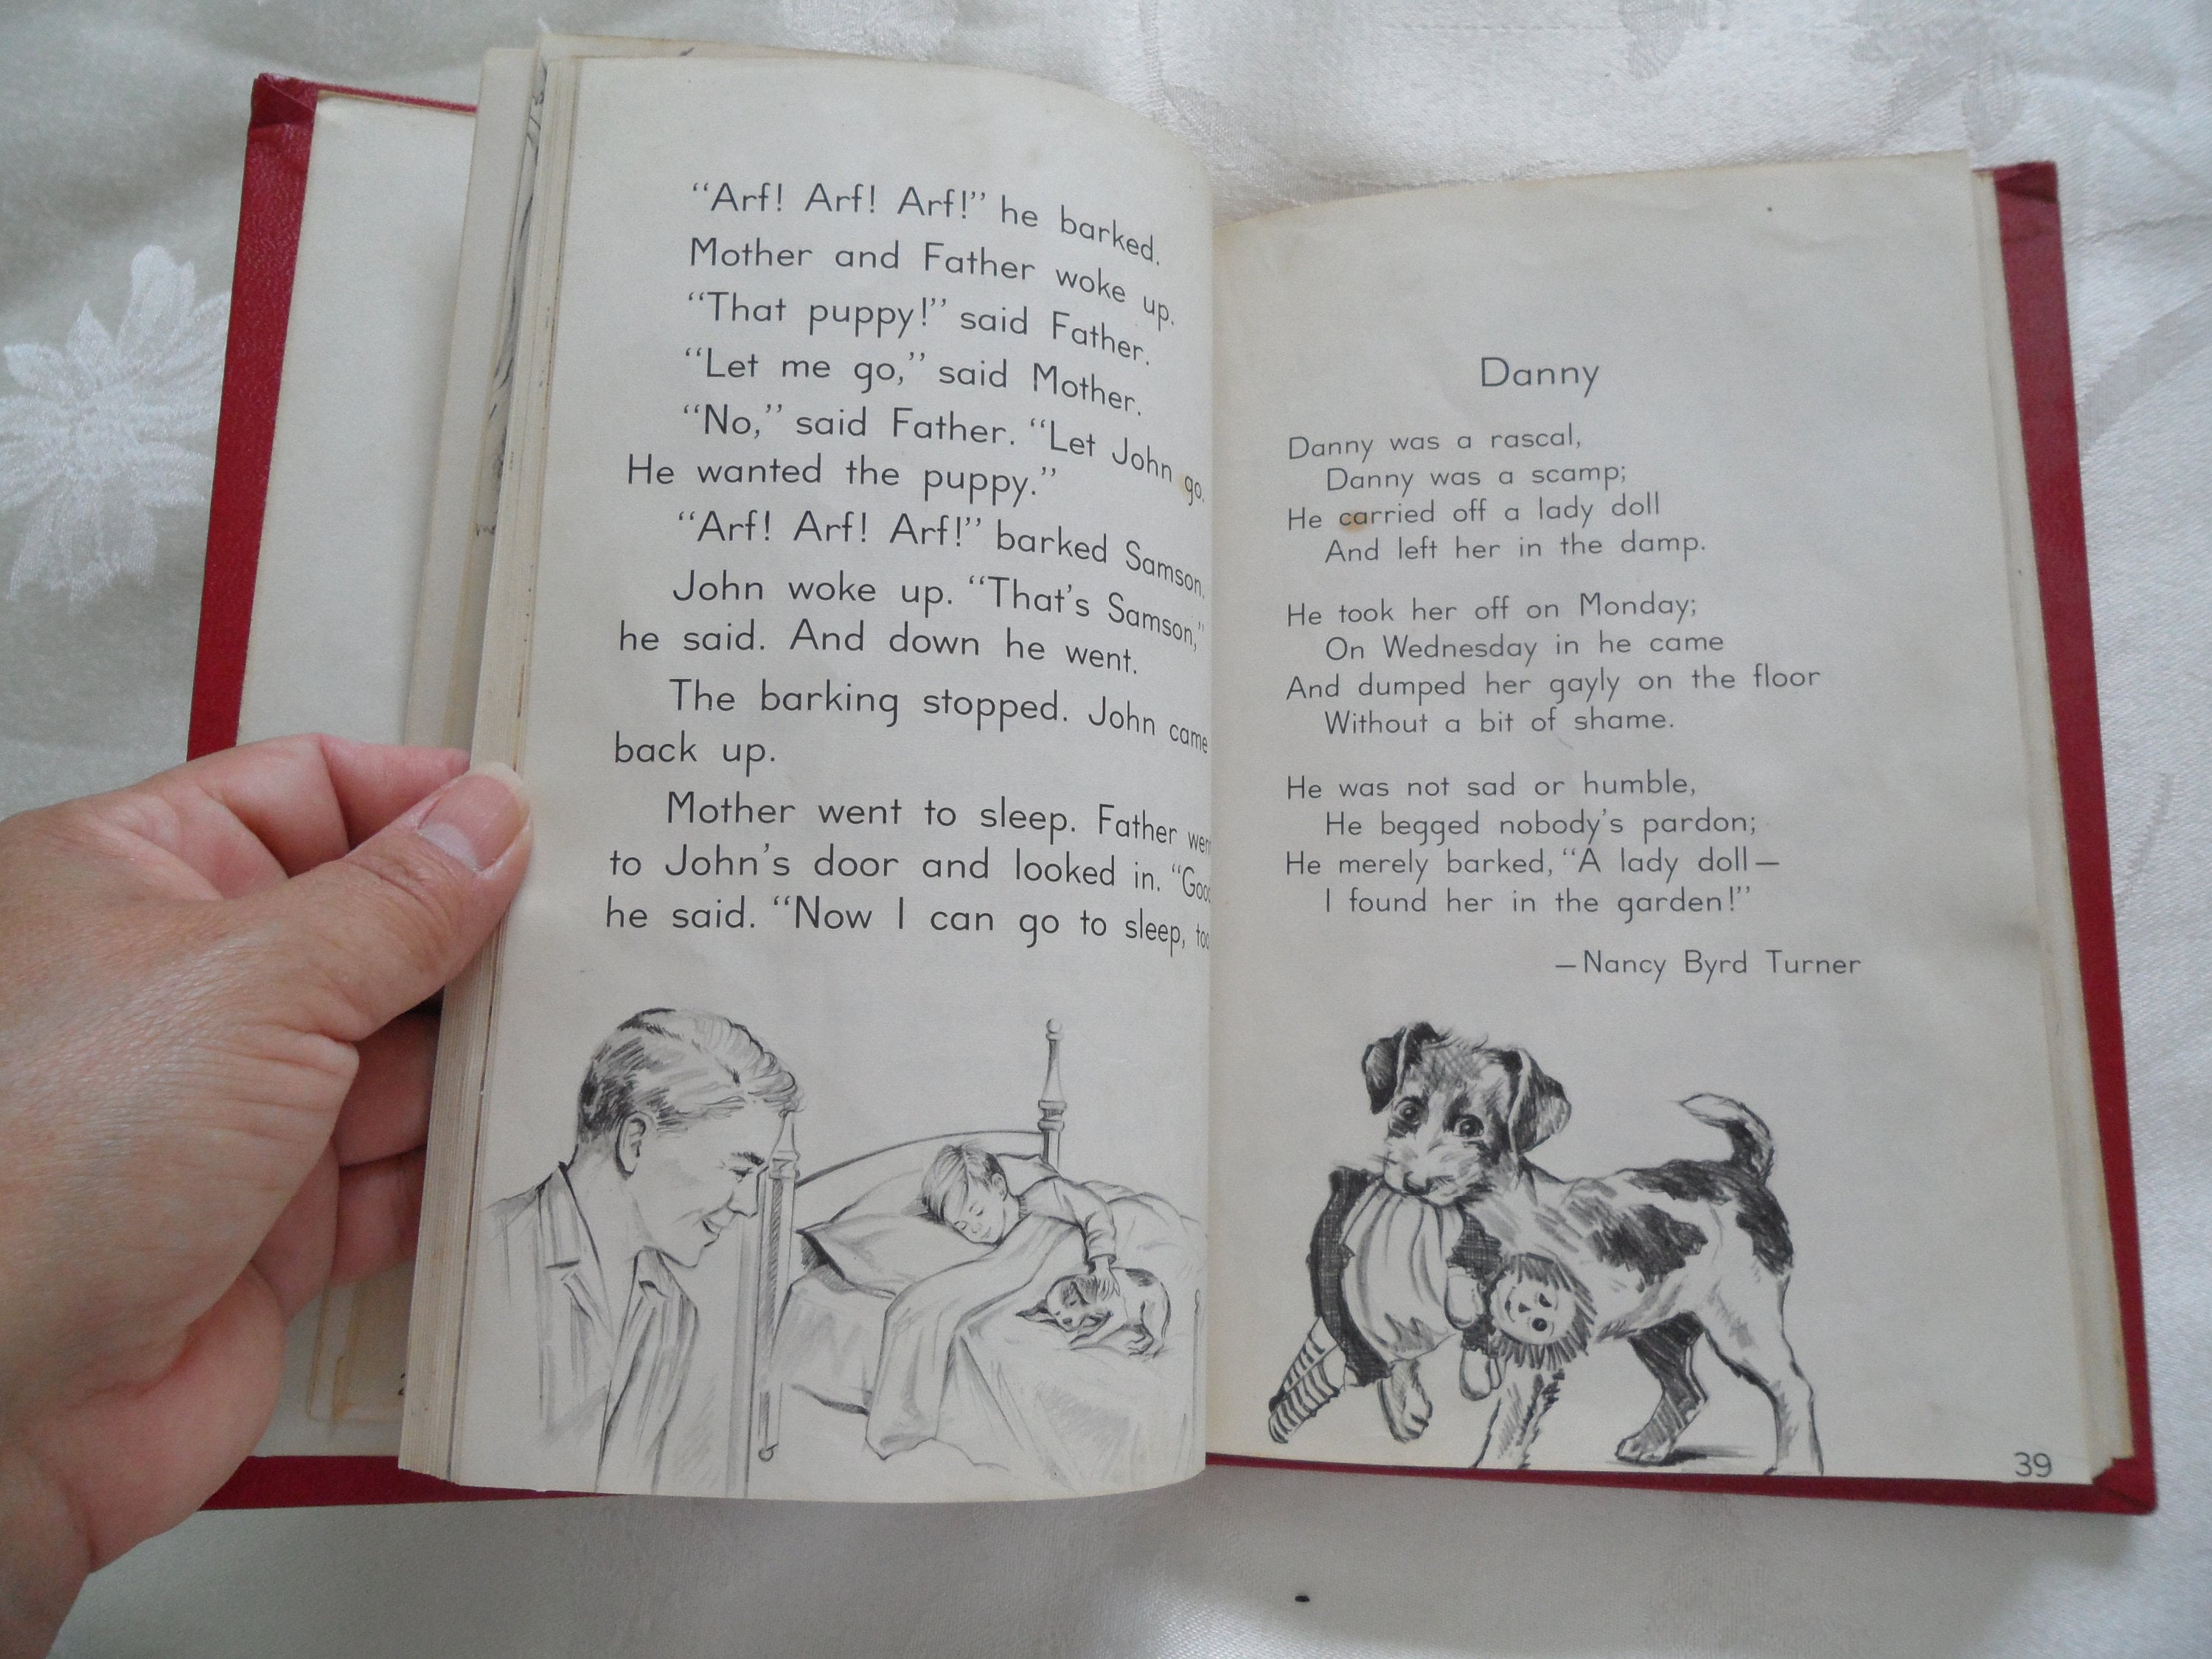 “Arf! Arf! Arf!” he barked.
Mother and Father woke up.
“That puppy!” said Father.
“Let me go,” said Mother.
“No,” said Father. “Let John go.
He wanted the puppy.”
“Arf! Arf! Arf!” barked Samson.
John woke up. “That’s Samson,”
he said. And down he went.
The barking stopped. John came
back up.
Mother went to sleep. Father
to John’s door and looked in.
he said. “Now I can go to sleep,
Danny
Danny was a rascal,
Danny was a scamp;
He carried off a lady doll
And left her in the damp.
He took her off on Monday;
On Wednesday in he came
And dumped her gayly on the floor
Without a bit of shame.
He was not sad or humble,
He begged nobody’s pardon;
He merely barked, “A lady doll—
I found her in the garden!”
—Nancy Byrd Turner
39